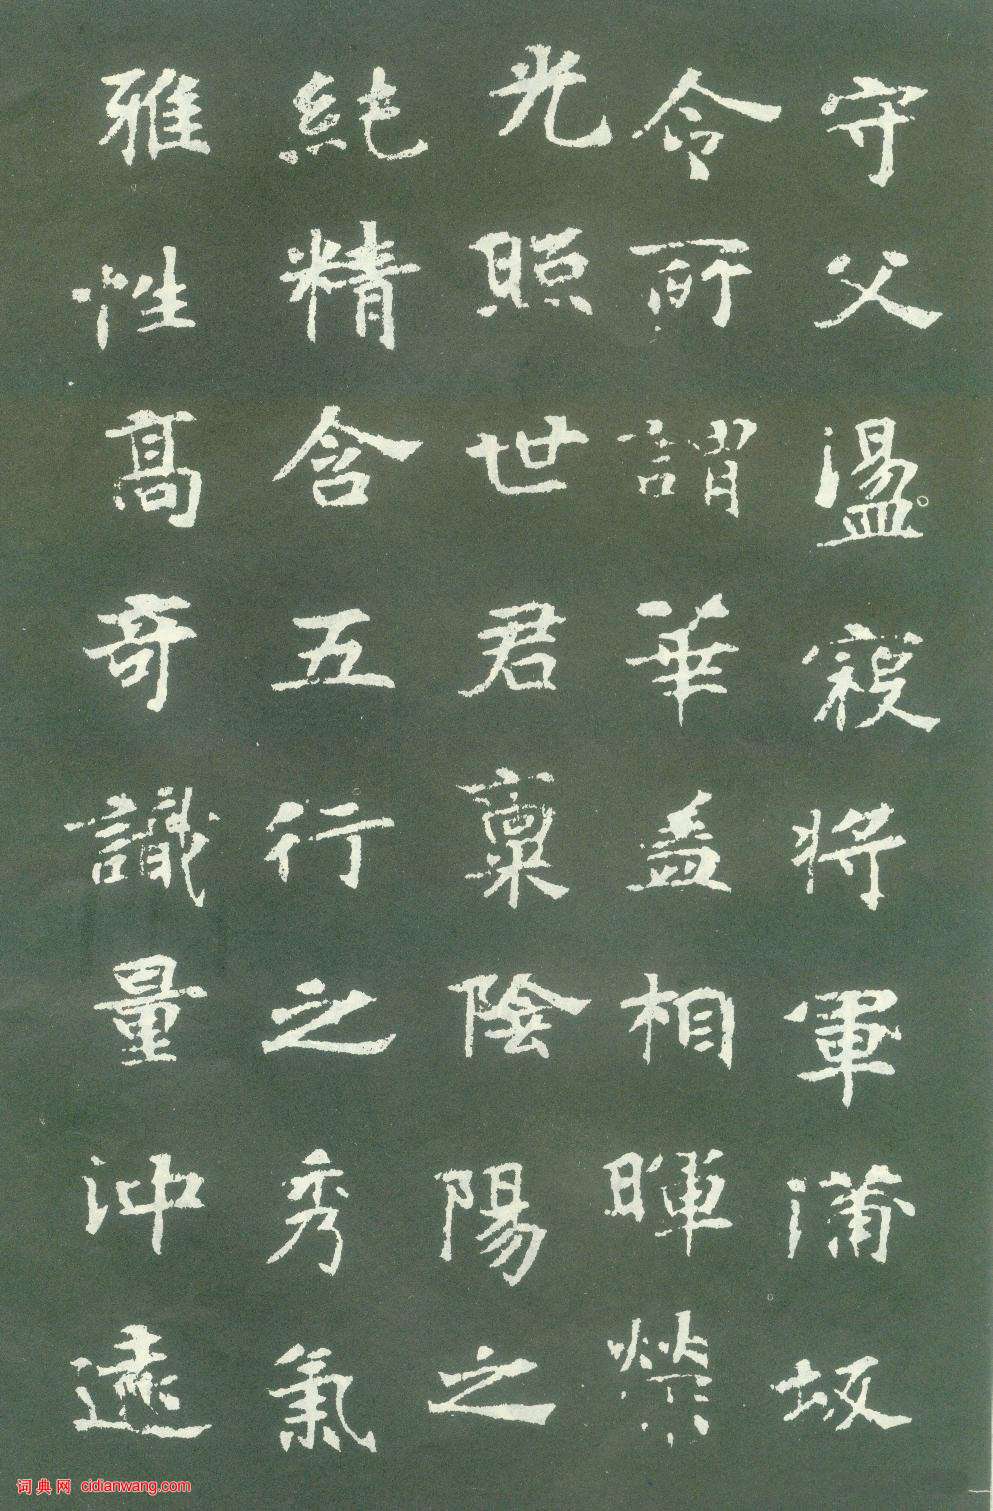 守父溫寇將軍蒲坂
令所謂華蓋相暉榮
光照世君稟陰陽之
純精含五行之秀氣
雅性高奇識量沖遠
词典网 cidianwang.com